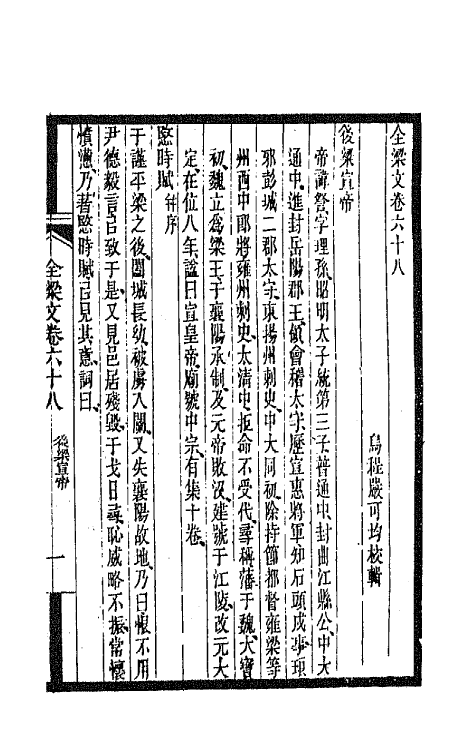 全梁文卷六十八
烏程嚴可均校輯
後梁宣帝
帝諱詧字理孫昭明太子統第三子普通中封曲江縣公中大
通中進封岳陽郡王領會稽太守歷宣惠將軍知石頭戍事琅
邪彭城二郡太守東揚州刺史中大同初除持節都督雍梁等
州西中郎將雍州刺史太清中拒命不受代尋稱藩于魏大寶
初魏立為梁王于襄陽承制及元帝敗沒建號于江陵改元大
定在位八年諡曰宣皇帝廟號中宗有集十卷
愍時賦 并序
于謹平梁之後闔城長幼被虜入關又失襄陽故地乃曰恨不用
尹德毅言㠯致于是又見邑居殘毀干戈日尋恥威略不振常懷
憤懣乃著愍時賦㠯見其意詞曰
全梁文卷六十八 後梁宣帝 一